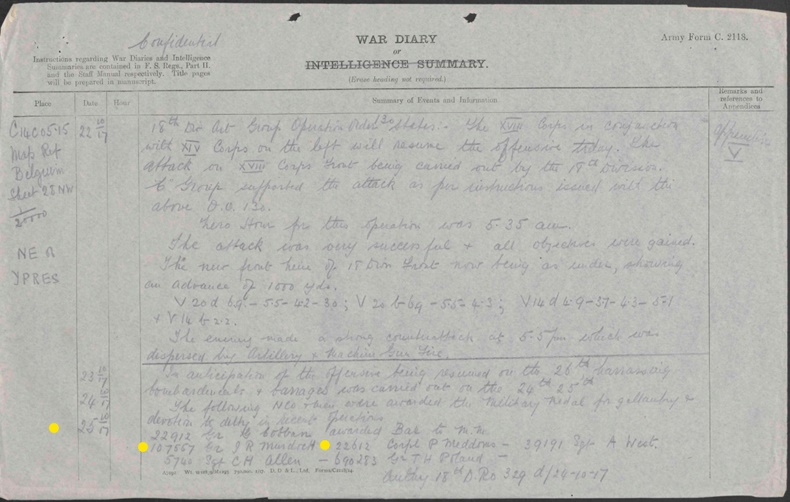 Confidential
WAR DIARY
or
INTELLIGENCE SUMMARY.
(Erase heading not required.)
Army Form C. 2118.
Instructions regarding War Diaries and Intelligence
Summaries are contained in F. S. Regs., Part II.
and the Staff Manual respectively. Title pages
will be prepared in manuscript.
Place Date Hour Summary of Events and Information Remarks and references to Appendices
C14C05-15 22 10/17 18th Div Art Group Operation Order 130 states - The XVIII Corps in conjunction
Map Ref with XIV Corps on the left will resume the offensive today. The
Belgium attack on XVIII Corps Front being carried out by the 18th Division.
Sheet 28 NW C Group supported the attack as per instructions issued with the
1/20000 above O.O 130.
Appendix V
Zero Hour for this operation was 5-35 am.
NE R The attack was very successful & all objectives were gained.
YPRES The new front line of 18 Divn Front now being as under, showing
an advance of 1000 yds.
V 20 d 69 - 55-42-30; V 20 b 69 - 55-4-3; V14d 4-9-37-43-51
& V 14 b 2.2.
The enemy made a strong counterattack at 5-5 pm which was
dispersed by Artillery & Machine Gun Fire.
23 10/17 In anticipation of the offensive being resumed on the 26th harrassing
24 10/17 bombardments & barrages was carried out on the 24th 25th
25 10/17 The following NCO & men were awarded the Military Medal for gallantry &
devotion to duty in recent operations
22912 Gr awarded Bar to M.M.
107557 Gr J R Murdoch 22612 Corpl P Meddows - 39191 Sgt A West.
5740 Sgt C H Allen - 690283 Gr T H Poland -
Authy 18th D.RO 329 d/24-10-17